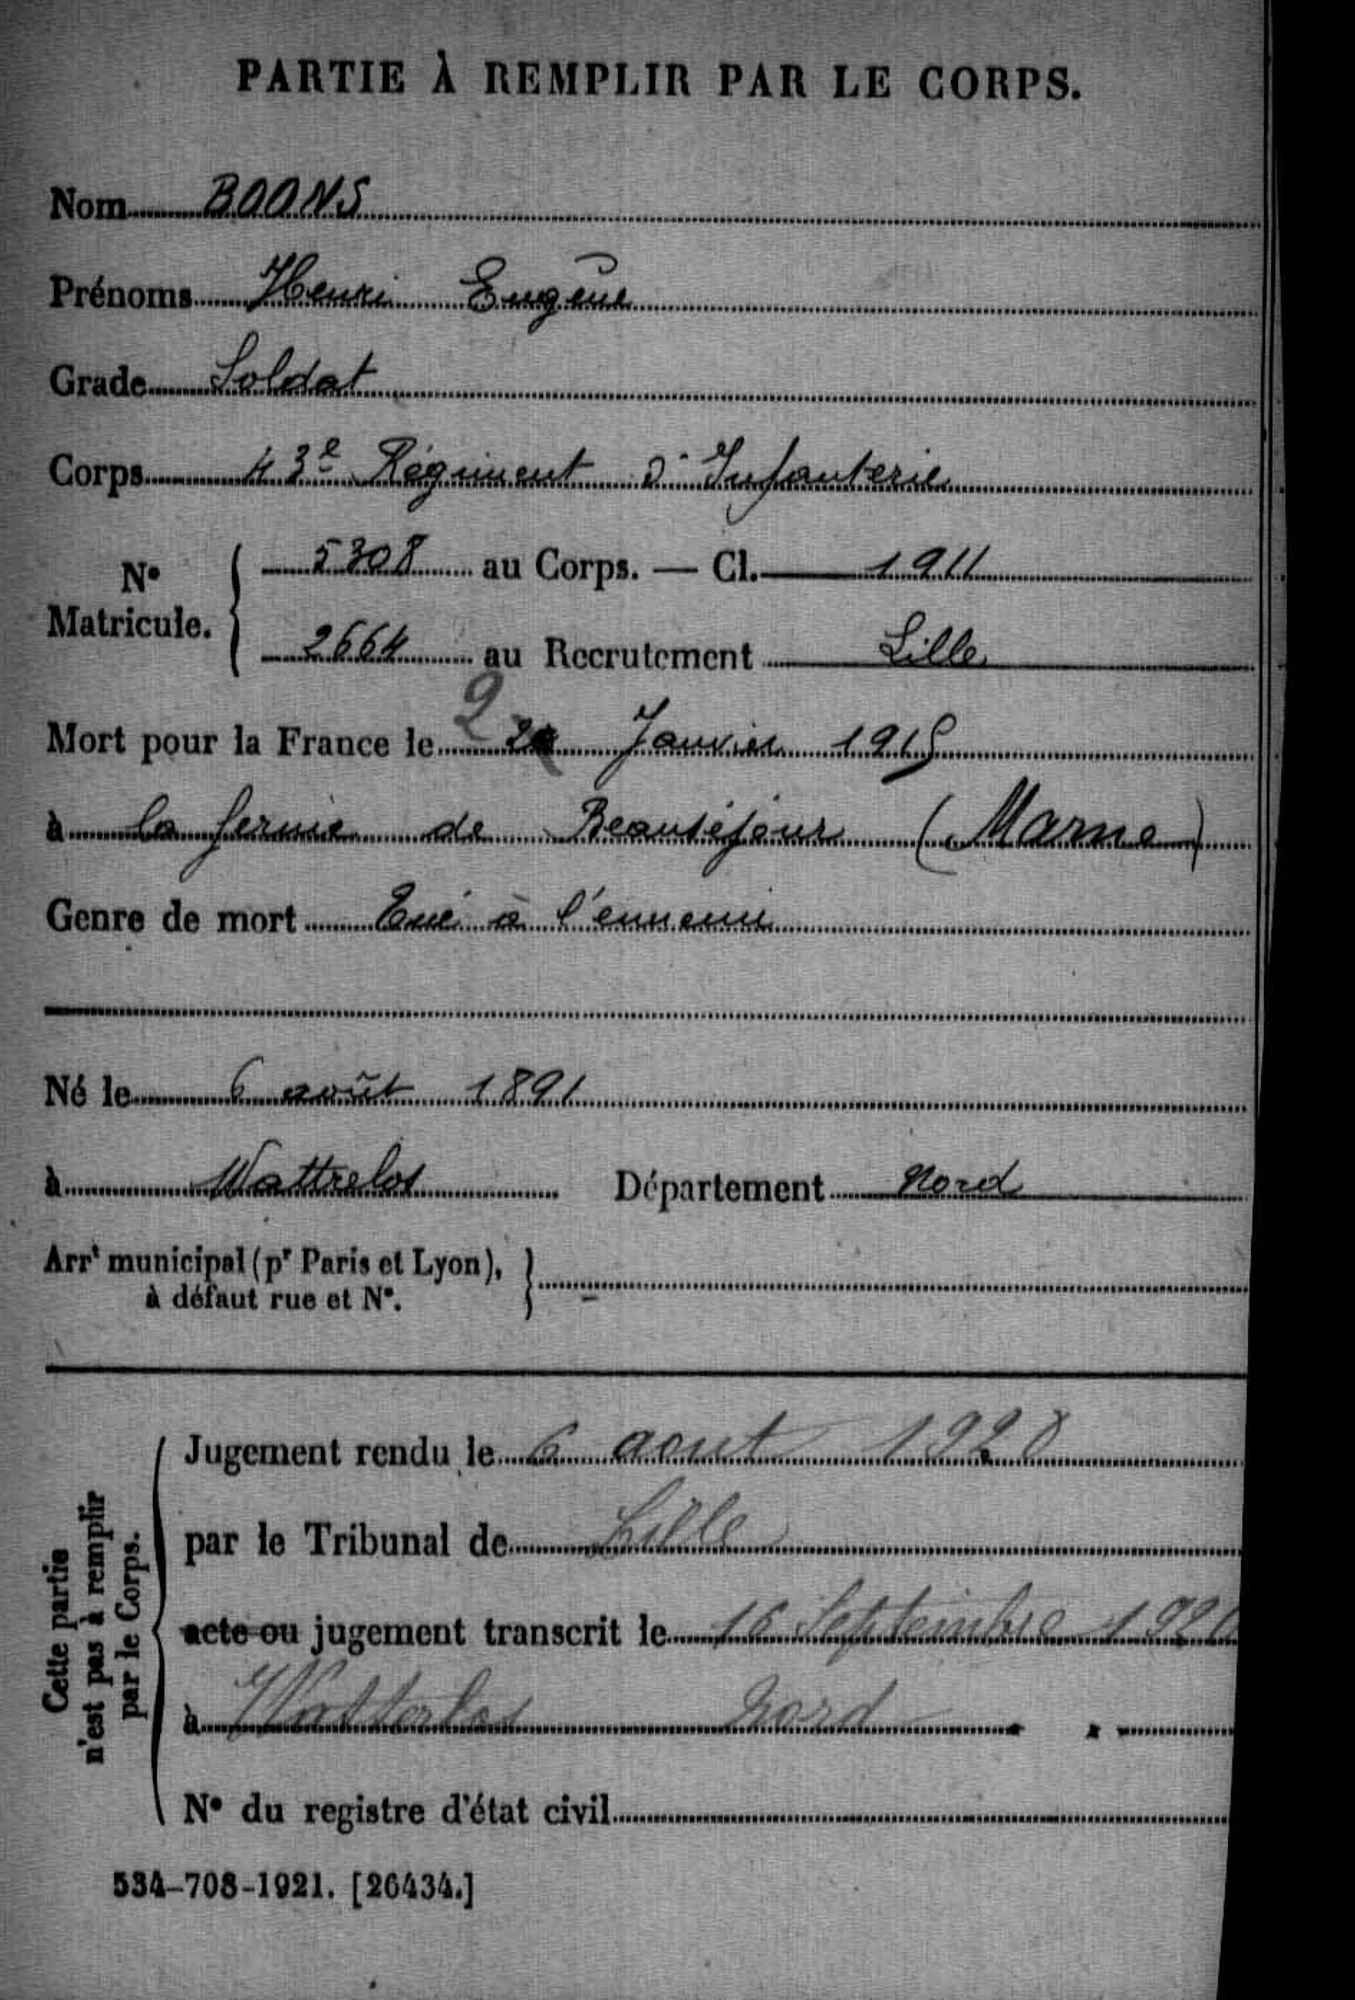 PARTIE À REMPLIR PAR LE CORPS.
Nom BOONS
Prénoms Henri Eugène
Grade Soldat
Corps 43e Régiment d'Infanterie
No Matricule. 5308 au Corps. — Cl. 1911
2664 au Recrutement Lille
Mort pour la France le 2 Janvier 1915
à la ferme de Beauséjour (Marne)
Genre de mort Tué à l'ennemi
Né le 6 août 1891
à Wattrelos Département Nord
Arrt municipal (pr Paris et Lyon),
à défaut rue et No.
Cette partie
n'est pas à remplir
par le Corps.
Jugement rendu le 6 aout 1920
par le Tribunal de Lille
acte ou jugement transcrit le 16 Septembre 1920
à Watterlos Nord
No du registre d'état civil
534-708-1921. [26434.]